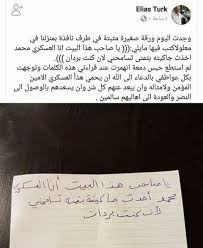 Elias Turk
١ ساعة
وجدت اليوم ورقة صغيرة مثبتة في طرف نافذة بمنزلنا في
معلولاكتب فيها مايلي:((( يا صاحب هذا البيت انا العسكري محمد
اخذت جاكيته بتمنى تسامحني لان كنت بردان ))).
لم استطع حبس دمعة انهمرت عند قراءتي هذه الكلمات وتوجهت
بكل عواطفي بالدعاء الى الله ان يحمي هذا العسكري الامين
المؤمن ولامثاله وان يبعد عنهم كل شر وان يسعدهم بالوصول الى
النصر والعودة الى اهاليهم سالمين .
يا صاحب هذا البيت أنا العسكري
محمد أخذت جاكيته بتمنى تسامحني
لأن كنت بردان